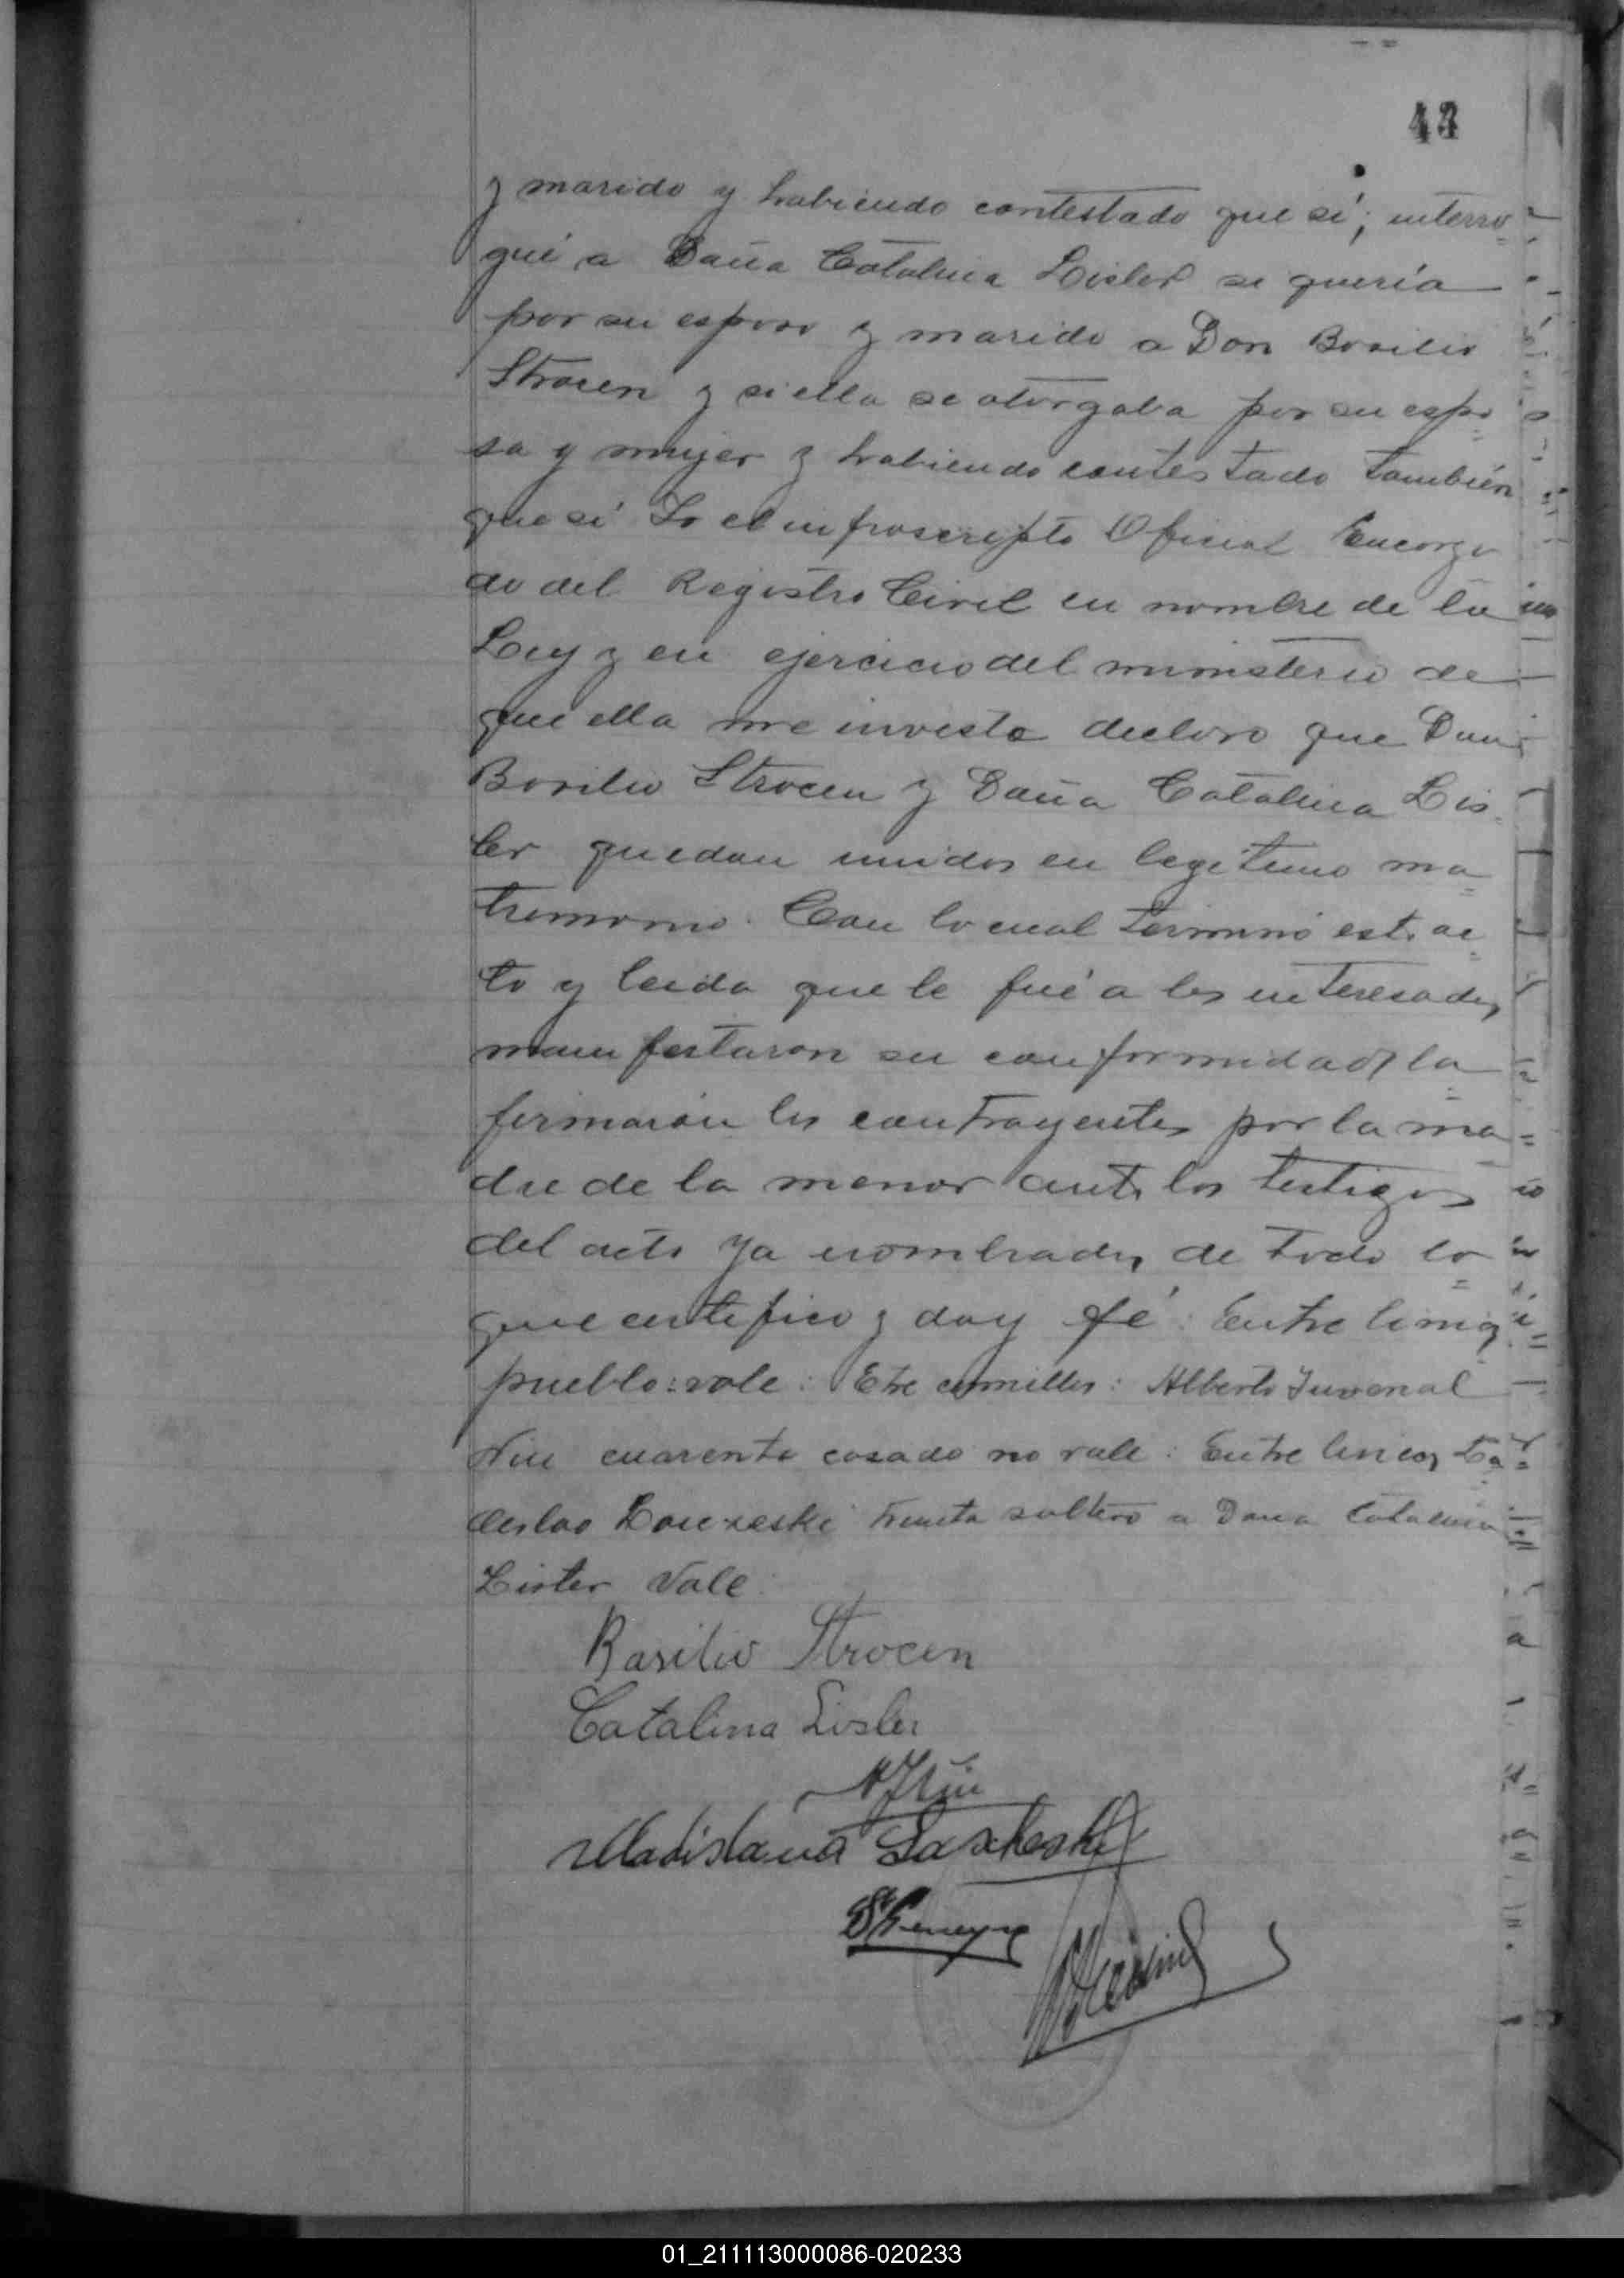 43
y marido y habiendo contestado que sí; interro-
gué a Doña Catalina Lisler si quería
por su esposo y marido a Don Basilio
Strocen y si ella se otorgaba por su espo-
sa y mujer y habiendo contestado también
que sí Yo el infrascripto Oficial Encarga
do del Registro Civil en nombre de la
Ley y en ejercicio del ministerio de
que ella me inviste declaro que Don
Basilio Strocen y Doña Catalina Lis-
ler quedan unidos en legítimo ma-
trimonio. Con lo cual terminó este ac-
to y leida que le fué a los interesados
manifestaron su conformidad la
firmaron los contrayentes por la ma-
dre de la menor ante los testigos
del acto ya nombrados, de todo lo
que certifico y doy fé: Entre lineas
pueblo: vale: Etre comillas: Alberto Juvenal
Niu cuarenta casado no vale: Entre lineas
treinta soltero a Doña Catalina
Lister Vale:
Basilio Strocen
Catalina Lisler
01_211113000086-020233